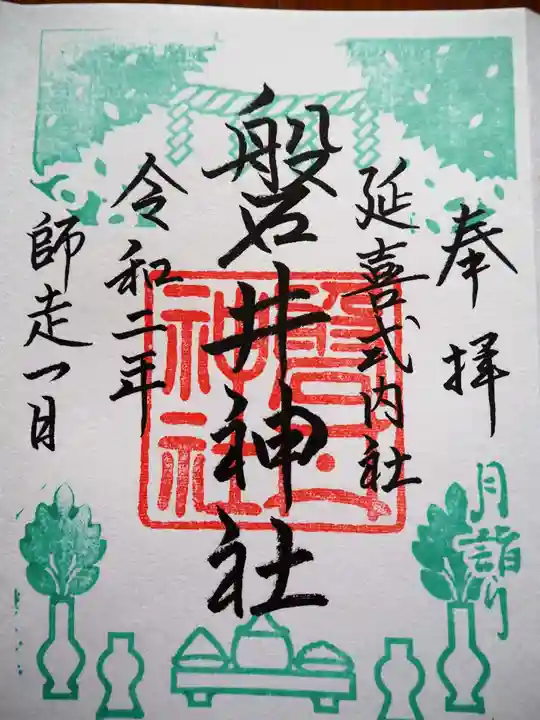 奉拝
月詣り
延喜式内社
磐井神社
令和二年
師走一日
磐井神社